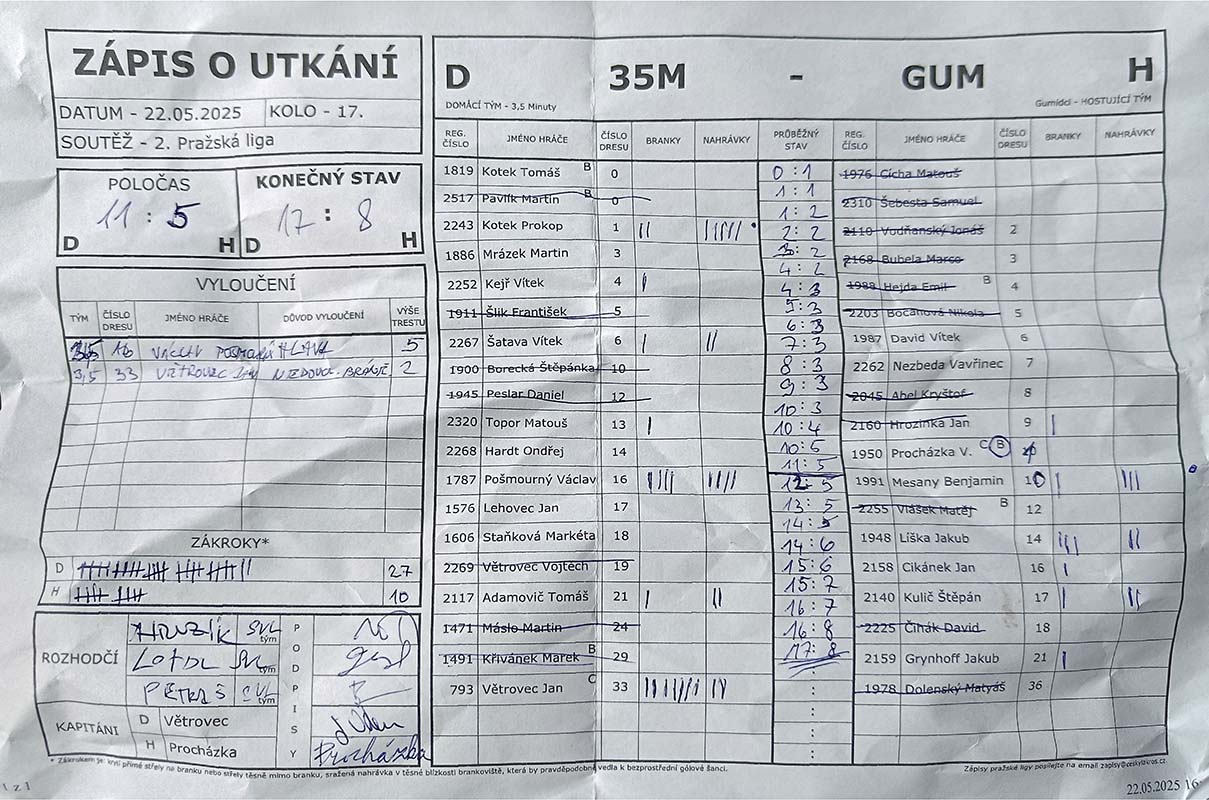 ZÁPIS O UTKÁNÍ
DATUM - 22.05.2025 KOLO - 17.
SOUTĚŽ - 2. Pražská liga
POLOČAS
11 : 5
D H
KONEČNÝ STAV
17 : 8
D H
VYLOUČENÍ
TÝM ČÍSLO DRESU JMÉNO HRÁČE DŮVOD VYLOUČENÍ VÝŠE TRESTU
3,5 16 VÁCLAV HLAVA 5
3,5 33 VĚTROVEC JAN NEDOVOL. BRÁNĚNÍ 2
ZÁKROKY*
D 27
H 10
ROZHODČÍ
HRUZÍK tým
tým
tým
PODPISY
KAPITÁNI
D Větrovec
H Procházka
Procházka
D 35M - GUM H
DOMÁCÍ TÝM - 3,5 Minuty Gumídci - HOSTUJÍCÍ TÝM
REG. ČÍSLO JMÉNO HRÁČE ČÍSLO DRESU BRANKY NAHRÁVKY PRŮBĚŽNÝ STAV REG. ČÍSLO JMÉNO HRÁČE ČÍSLO DRESU BRANKY NAHRÁVKY
1819 Kotek Tomáš B 0
2517 Pavlík Martin B 0
2243 Kotek Prokop 1 || |||||
1886 Mrázek Martin 3
2252 Kejř Vítek 4 |
1911 Šlik František 5
2267 Šatava Vítek 6 | ||
1900 Borecká Štěpánka 10
1945 Peslar Daniel 12
2320 Topor Matouš 13 |
2268 Hardt Ondřej 14
1787 Pošmourný Václav 16 |||| ||||
1576 Lehovec Jan 17
1606 Staňková Markéta 18
2269 Větrovec Vojtěch 19
2117 Adamovič Tomáš 21 | ||
1471 Máslo Martin 24
1491 Křivánek Marek B 29
793 Větrovec Jan C 33 ||||||| ||
0 : 1
1 : 1
1 : 2
2 : 2
3 : 2
4 : 2
4 : 3
5 : 3
6 : 3
7 : 3
8 : 3
9 : 3
10 : 3
10 : 4
10 : 5
11 : 5
12 : 5
13 : 5
14 : 5
14 : 6
15 : 6
15 : 7
16 : 7
16 : 8
17 : 8
:
:
:
1976 Cícha Matouš
2310 Šebesta Samuel
2110 Vodňanský Jonáš 2
2168 Bubela Marco 3
1988 Hejda Emil B 4
2203 Bočanová Nikola 5
1987 David Vítek 6
2262 Nezbeda Vavřinec 7
2045 Abel Kryštof 8
2160 Hrozinka Jan 9 |
1950 Procházka V. C B
1991 Mesany Benjamin 10 | |||
2255 Vlášek Matěj B 12
1948 Líška Jakub 14 ||| ||
2158 Cikánek Jan 16 |
2140 Kulič Štěpán 17 | ||
2225 Čihák David 18
2159 Grynhoff Jakub 21 |
1978 Dolenský Matyáš 36
* Zákrokem je: krytí přímé střely na branku nebo střely těsně mimo branku, sražená nahrávka v těsné blízkosti brankoviště, která by pravděpodobně vedla k bezprostřední gólové šanci.
Zápisy pražské ligy posílejte na email zapisy@ceskylakros.cz.
1 z 1
22.05.2025 16